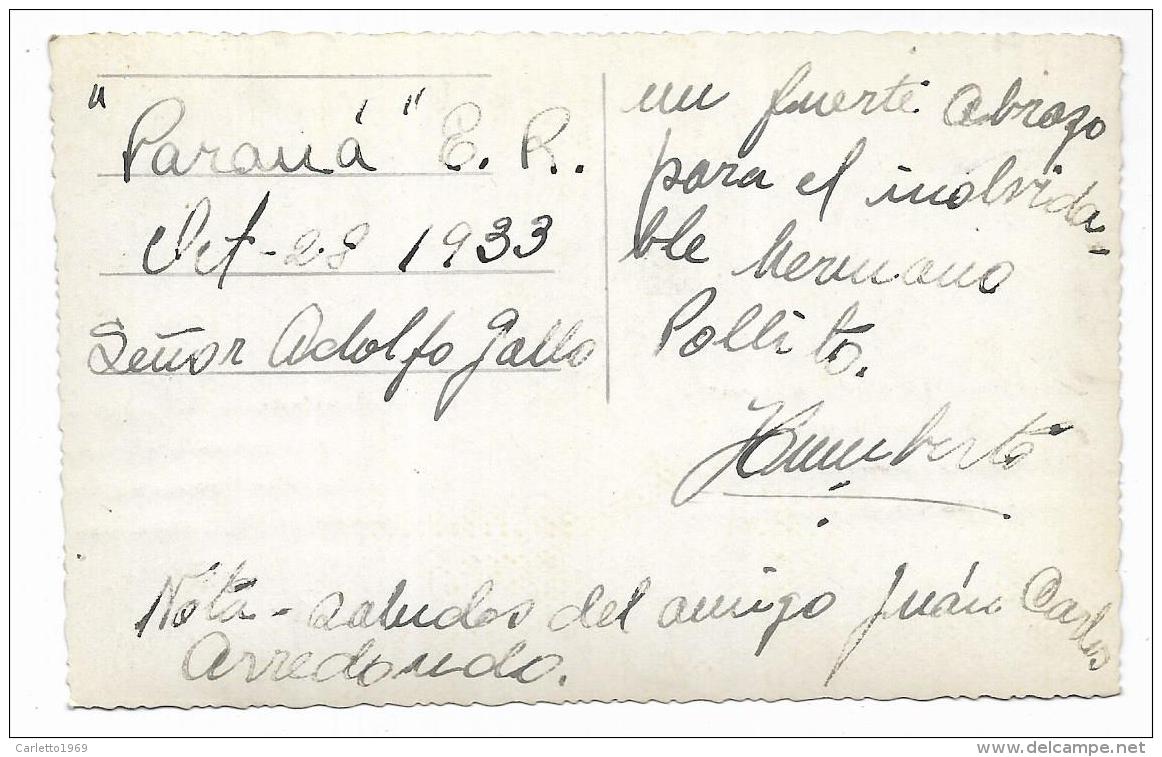 "Paraná" E. R.
Oct-28 1933
Señor Adolfo Gallo
un fuerte abrazo
para el inolvida-
ble hermano
Pollito.
Humberto
Nota - saludos del amigo Juán Carlos
Arredondo.
Carletto1969
www.delcampe.net